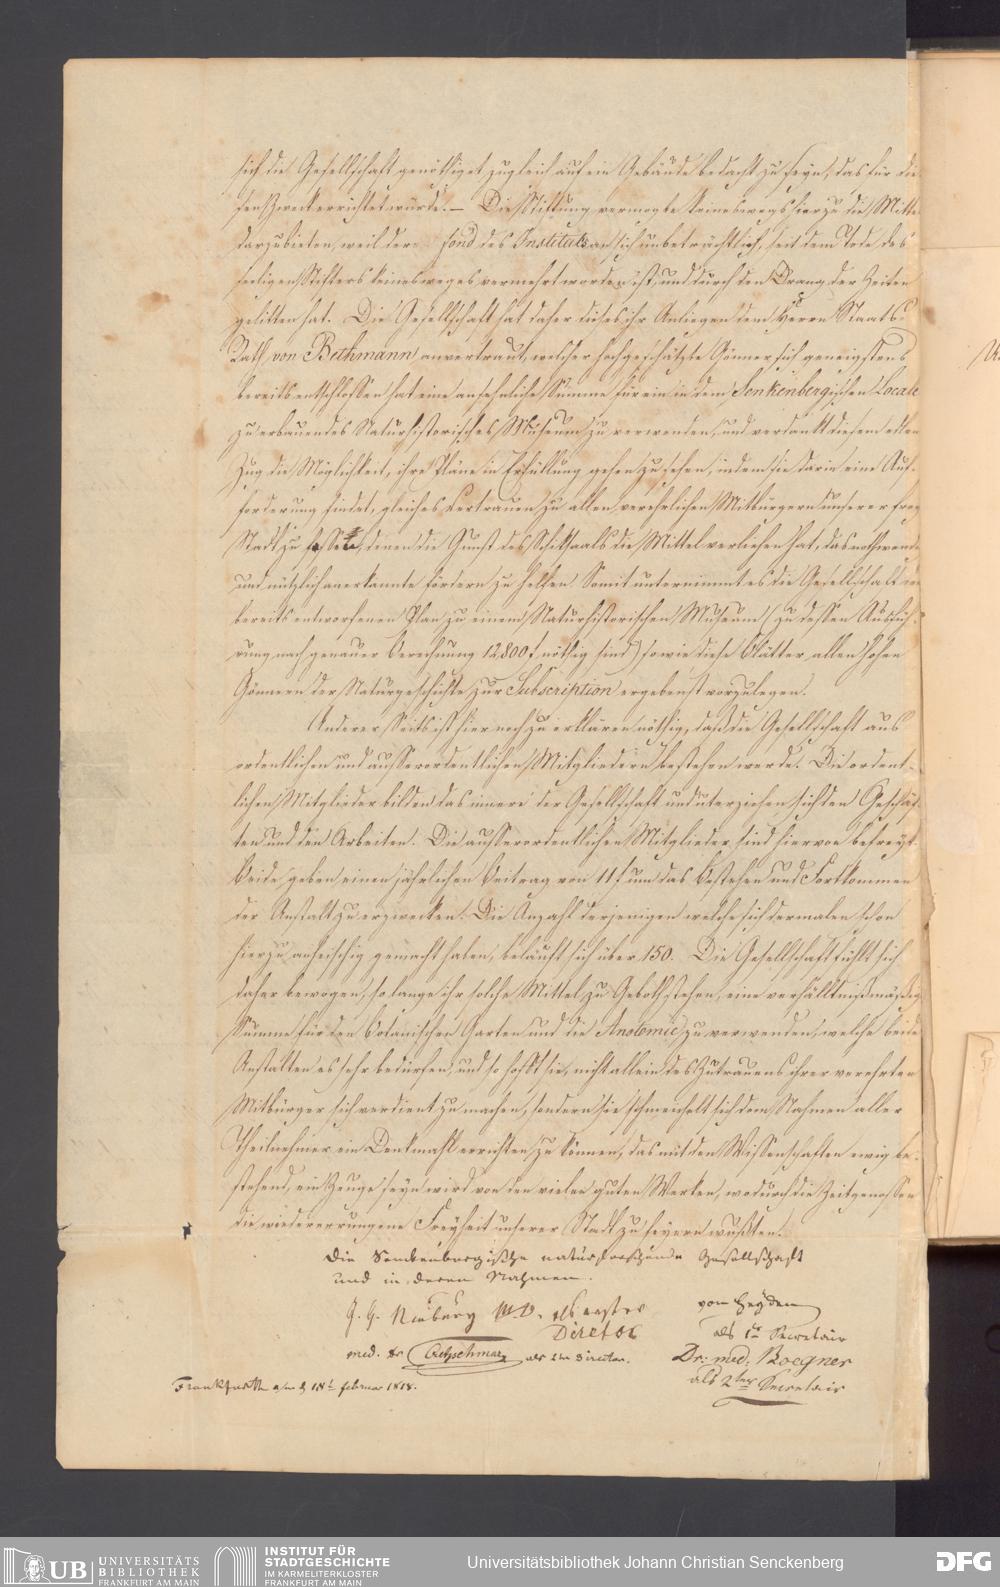 sich die Gesellschaft genöthiget zugleich auf ein Gebäude bedacht zu seyn, das für die-
sen Zweck errichtet würde. — Die Stiftung vermogte keineswegs hierzu die Mittel
darzubieten, weil der fond des Instituts an sich unbeträchtlich, seit dem Tode des
seeligen Stifters keinesweges vermehrt worden ist, und durch den Drang der Zeiten
gelitten hat. Die Gesellschaft hat daher dieses ihr Anliegen dem Herrn Staats-
Rath von Bethmann anvertraut, welcher hochgeschätzte Gönner sich geneigtest
bereits entschlossen hat eine ansehnliche Summe für ein in dem Senkenbergischen Locale
zu erbauendes Naturhistorisches Museum zu verwenden, und verdankt diesem edlen
Zug die Möglichkeit, ihre Pläne in Erfüllung gehen zu sehen, indem sie darin eine Auf-
forderung findet, gleiches Vertrauen zu allen verehrlichen Mitbürgern unserer freyen
Stadt zu fassen, denen die Gunst des Schiksaals die Mittel verliehen hat, das nothwendig
und nützlich anerkannte fördern zu helfen. Somit unternimmt es die Gesellschaft den
bereits entworfenen Plan zu einem Naturhistorischen Museum (zu dessen Ausfüh-
rung nach genauer Berechnung 12,800 f nöthig sind) sowie diese Blätter allen hohen
Gönnern der Naturgeschichte zur Subscription ergebenst vorzulegen.
Anderer Seits ist hier noch zu erklären nöthig, daß die Gesellschaft aus
ordentlichen und ausserordentlichen Mitgliedern bestehen werde. Die ordent-
lichen Mitglieder bilden das innere der Gesellschaft und unterziehen sich den Geschäf-
ten und den Arbeiten. Die ausserordentlichen Mitglieder sind hiervon befreyt.
Beide geben einen jährlichen Beitrag von 11 f um das Bestehen und Fortkommen
der Anstalt zu erzwecken. Die Anzahl derjenigen welche sich dermalen schon
hierzu anheischig gemacht haben, beläuft sich über 150. Die Gesellschaft fühlt sich
daher bewogen, so lange ihr solche Mittel zu Geboth stehen, eine verhältnißmäßige
Summe für den botanischen Garten und die Anatomie zu verwenden, welche beide
Anstalten es sehr bedürfen, und so hofft sie, nicht allein des Zutrauens ihrer verehrten
Mitbürger sich verdient zu machen, sondern sie schmeichelt sich dem Nahmen aller
Theilnehmer ein Denkmahl errichten zu können, das mit den Wissenschaften ewig be-
stehend, ein Zeuge seyn wird von den vielen guten Werken, wodurch die Zeitgenossen
die wiedererrungene Freyheit unserer Stadt zu feyern wußten.
Die Senkenbergische naturforschende Gesellschaft
und in deren Nahmen.
J. G. Neuburg M. D. als erster
Director
med. Dr Cretzschmar als 2ter Director.
von Heyden
als 1ter Secretair
Dr: med: Boegner
als 2ter Secretair
Frankfurth a/m d 18t Februar 1818.
UB UNIVERSITÄTS
BIBLIOTHEK
FRANKFURT AM MAIN
INSTITUT FÜR
STADTGESCHICHTE
IM KARMELITERKLOSTER
FRANKFURT AM MAIN
Universitätsbibliothek Johann Christian Senckenberg
DFG